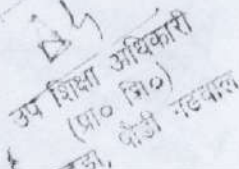 उप शिक्षा अधिकारी
(प्रा० शि०)
पौडी गढवाल